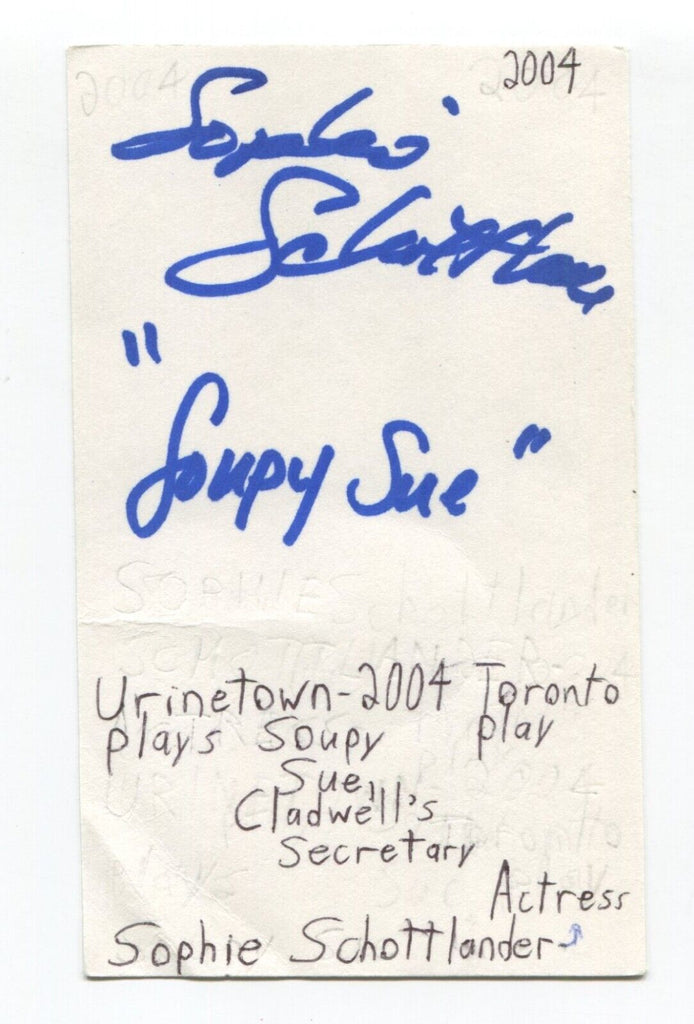 2004
Sophie
Schottlander
"
Soupy Sue"
Urinetown-2004 Toronto
plays Soupy play
Sue,
Cladwell's
Secretary
Actress
Sophie Schottlander